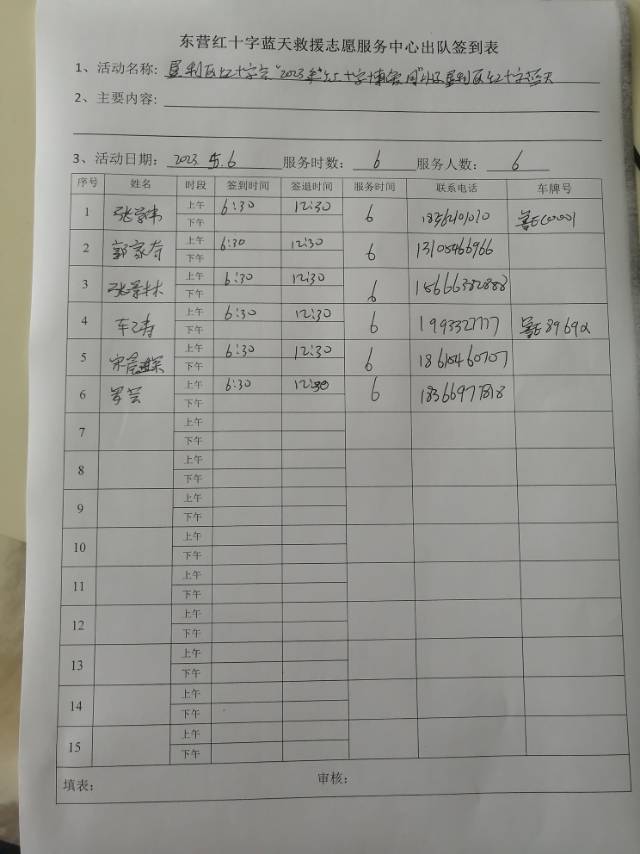 东营红十字蓝天救援志愿服务中心出队签到表
1、活动名称: 垦利区红十字会"2023年红十字博爱周"
2、主要内容:
3、活动日期: 2023.5.6 服务时数: 6 服务人数: 6
序号 姓名 时段 签到时间 签退时间 服务时间 联系电话 车牌号
1 上午 6:30 12:30 6
下午
2 郭家奇 上午 6:30 12:30 6 13105466966
下午
3 上午 6:30 12:30 6 15666382888
下午
4 车乙涛 上午 6:30 12:30 6
下午
5 上午 6:30 12:30 6
下午
6 罗芸 上午 6:30 12:30 6
下午
7 上午
下午
8 上午
下午
9 上午
下午
10 上午
下午
11 上午
下午
12 上午
下午
13 上午
下午
14 上午
下午
15 上午
下午
填表: 审核: